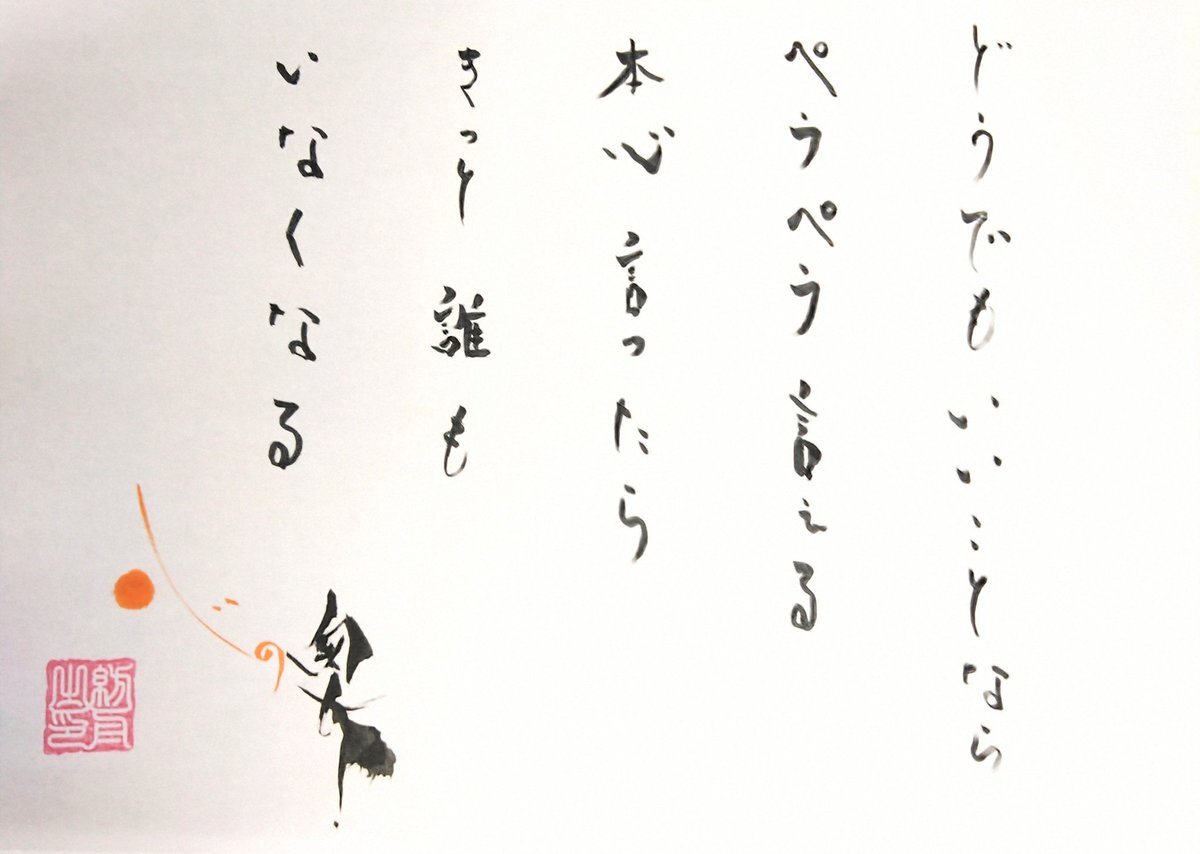 どうでもいいことなら
ぺらぺら言える
本心言ったら
きっと誰も
いなくなる